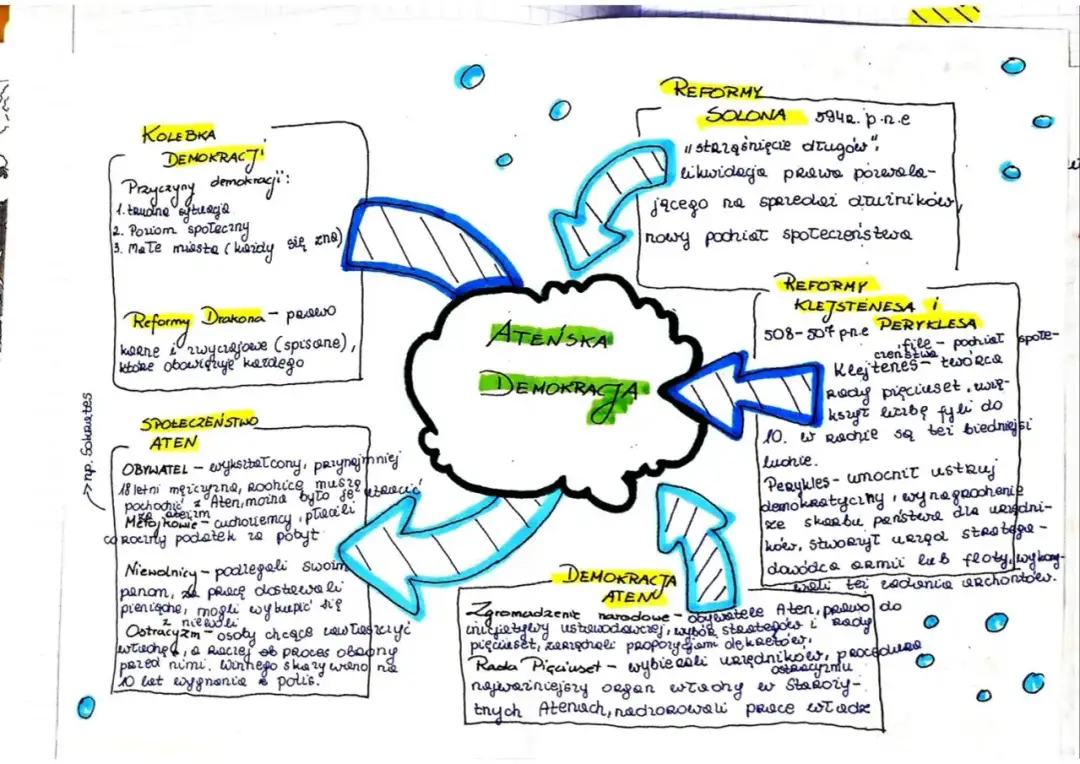 KOLEBKA
DEMOKRACJI
Przyczyny demokracji:
1. trudna sytuacja
2. Poziom społeczny
3. Małe miasta (każdy się zna)
Reformy Drakona - prawo
karne i zwyczajowe (spisane),
które obowiązuje każdego
REFORMY
SOLONA 594r. p.n.e
"strząśnięcie długów",
likwidacja prawa pozwala-
jącego na sprzedaż dłużników,
nowy podział społeczeństwa
ATEŃSKA
DEMOKRACJA
REFORMY
KLEJSTENESA i
PERYKLESA
508-507 p.n.e
file - podział społe-
czeństwa
Klejtenes - twórca
Rady pięciuset, zwię-
kszył liczbę fyli do
10. w radzie są też biedniejsi
ludzie.
Perykles - umocnił ustrój
demokratyczny, wynagrodzenie
ze skarbu państwa dla urzędni-
ków, stworzył urząd stratega -
dowódca armii lub floty, wykony-
wali też zadania archontów.
SPOŁECZEŃSTWO
ATEN
OBYWATEL - wykształcony, przynajmniej
18 letni mężczyzna, Rodzice muszą
pochodzić z Aten, można było je utracić
Metojkowie - cudzoziemcy, płacili
coroczny podatek za pobyt
→ np. Sokrates
Niewolnicy - podlegali swoim
panom, za pracę dostawali
pieniądze, mogli wykupić się
z niewoli
Ostracyzm - osoby chcące zawłaszczyć
władzę, a raczej proces obrony
przed nimi. Winnego skazywano na
10 lat wygnania z polis.
DEMOKRACJA
ATEN
Zgromadzenie narodowe - obywatele Aten, prawo do
inicjatywy ustawodawczej, wybór strategów i Rady
pięciuset, zarządzali propozycjami dekretów.
Rada Pięciuset - wybierali urzędników, procedura
ostracyzmu
najważniejszy organ władzy w Staroży-
tnych Atenach, nadzorowali prace władz